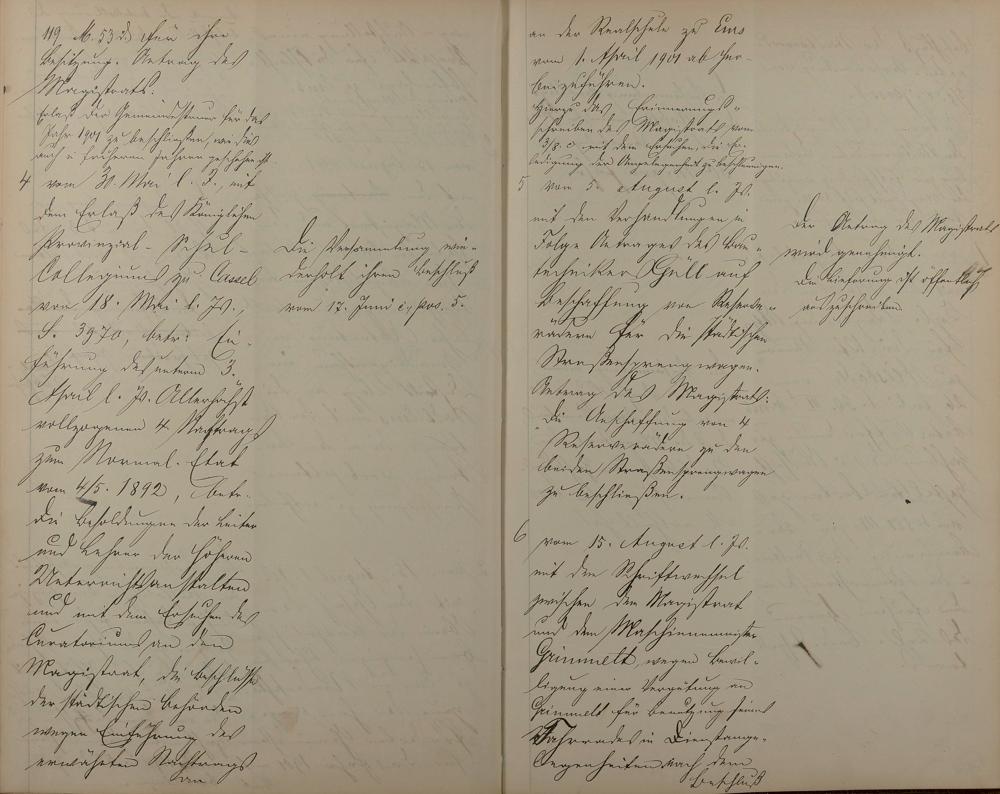 119 M. 53 d. für ihre
Besitzung. Antrag des
Magistrats:
Erlaß der Gemeindesteuer für das
Jahr 1901 zu beschließen, wie dies
auch in früheren Jahren geschehen ist.
4 vom 30. Mai l. J., mit
dem Erlaß des Königlichen
Provinzial-Schul-
Collegiums zu Cassel
vom 18. Mai l. Js.,
S. 3970, betr: Ein-
führung des unterm 3.
April l. Js. Allerhöchst
vollzogenen 4. Nachtrags
zum Normal-Etat
vom 4/5. 1892, betr.
die Besoldungen der Leiter
und Lehrer der höheren
Unterrichtsanstalten
und mit dem Ersuchen des
Curatoriums an den
Magistrat, die Beschlüsse
der städtischen Behörden
wegen Einführung des
erwähnten Nachtrags
an
Die Versammlung wie-
derholt ihren Beschluß
vom 17. Juni c., pos. 5.
an der Realschule zu Ems
vom 1. April 1901 ab her-
beizuführen.
Hierzu das Erinnerungs-
schreiben des Magistrats vom
3/8. c. mit dem Ersuchen, die Er-
ledigung der Angelegenheit zu beschleunigen.
5 vom 5. August l. Js.
mit den Verhandlungen in
Folge Antrages des Bau-
technikers Güll auf
Beschaffung von Reserve-
rädern für die städtischen
Straßensprengwagen.
Antrag des Magistrats:
Die Anschaffung von 4
Reserverädern zu den
beiden Straßensprengwagen
zu beschließen.
Der Antrag des Magistrats
wird genehmigt.
Die Lieferung ist öffentlich
auszuschreiben.
6 vom 15. August l. Js.
mit dem Schriftwechsel
zwischen dem Magistrat
und dem Maschinenmeister
Grimmelt, wegen Bewil-
ligung einer Vergütung an
Grimmelt für Benutzung seines
Fahrrades in Dienstange-
legenheiten nach dem
Beschluß